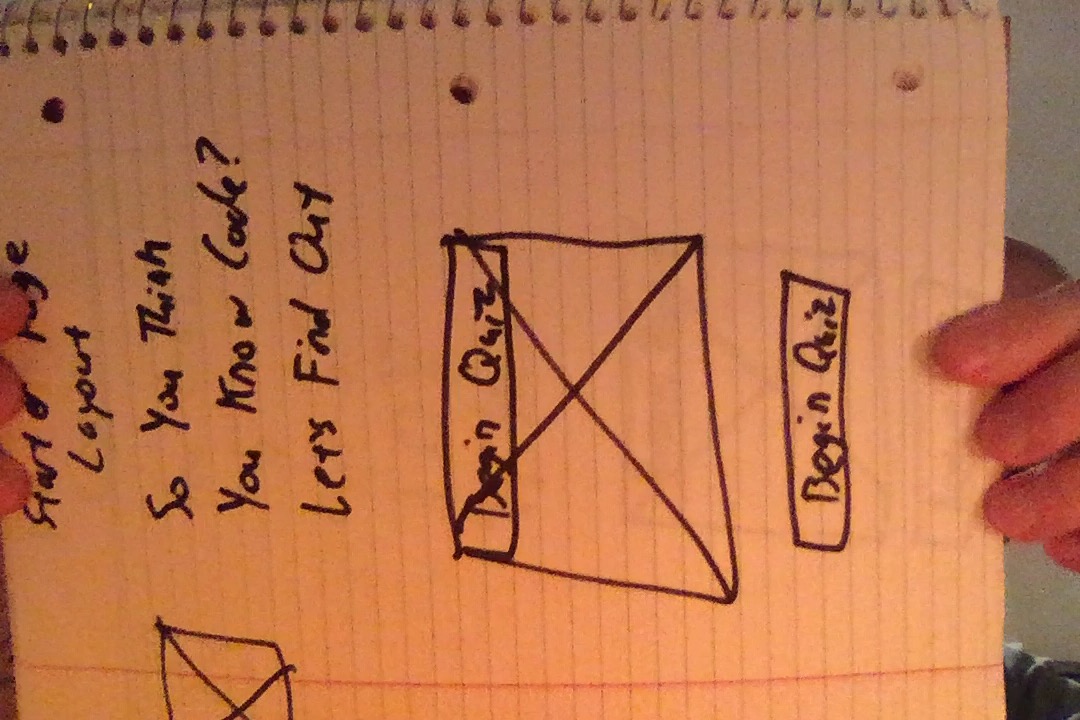 Start Page
Layout
So You Think
You Know Code?
Let's Find Out
Begin Quiz
Begin Quiz